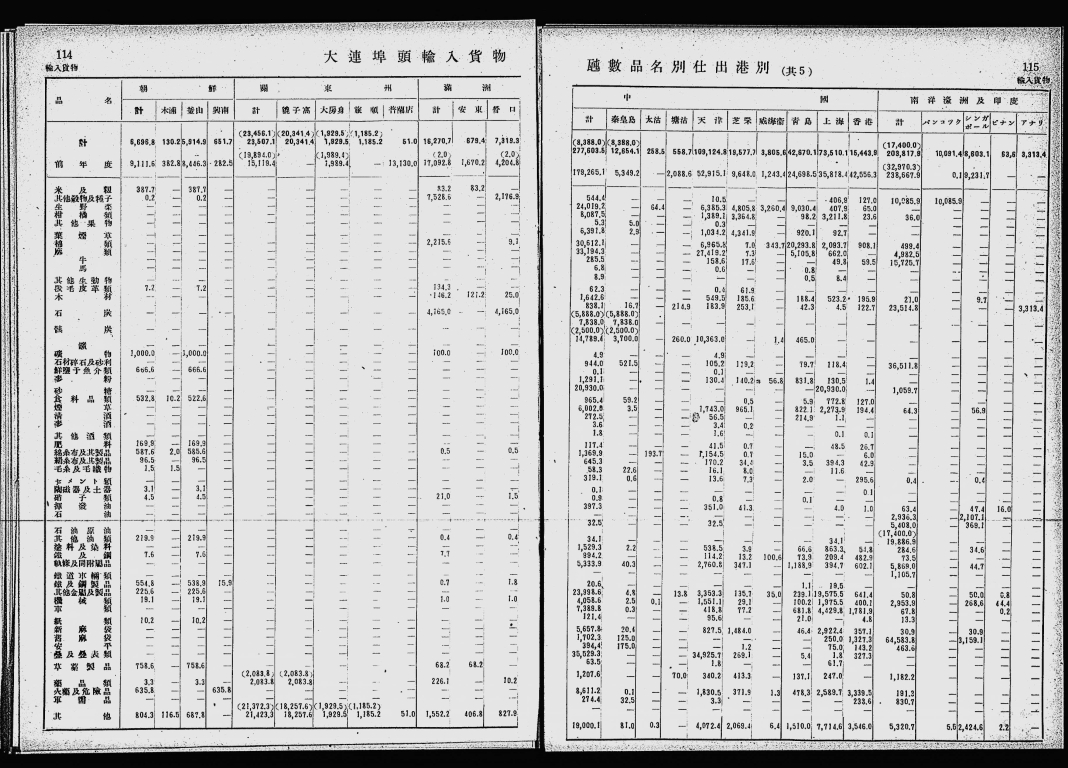 114
輸入貨物
大連埠頭輸入貨物
品名 朝鮮 關東州 滿洲
計 木浦 釜山 計 貔子窩 大房身 旅順 普蘭店 計 安東 營口
(23,456.1) (20,341.4) (1,929.5) (1,185.2)
計 6,696.8 130.2 5,914.9 651.7 23,507.1 20,341.4 1,929.5 1,185.2 51.0 16,270.7 679.4 7,319.3
(19,894.0) (1,989.4) (2.0) (2.0)
前年度 9,111.6 382.8 8,446.3 282.5 15,119.4 — 1,989.4 — 13,130.0 17,092.8 1,670.2 4,204.8
米及穀 387.7 — 387.7 — — — — — — 83.2 83.2 —
其他穀物及種子 0.2 — 0.2 — — — — — — 7,528.6 — 2,176.9
生野菜
柑橘類
其他果物
葉煙草
棉類 2,215.6 — 9.1
麻類
牛
馬
其他生動物
木材 146.2 121.2 25.0
石炭 4,165.0 — 4,165.0
礦物 1,000.0 — 1,000.0 — — — — — — 100.0 — 100.0
石材碎石及砂利
鮮鹽干魚介類 666.6 — 666.6
麥粉
砂糖
食料品類 532.8 10.2 522.6
煙草
清酒
麥酒
其他酒類
肥料 169.9 — 169.9
綿糸布及其製品 587.6 2.0 585.6 — — — — — — 0.5 — 0.5
絹糸布及其製品 96.5 — 96.5
毛糸及毛織物 1.5 1.5
セメント類
陶磁器及土器 3.1 — 3.1
硝子類 4.5 — 4.5 — — — — — — 21.0 — 1.5
揮發油
石油
石油原油
其他油類 219.9 — 219.9 — — — — — — 0.4 — 0.4
塗料及染料
鐵及鋼 7.6 — 7.6 — — — — — — 7.7
軌條及同附屬品
鐵道車輛類
鐵及鋼製品 554.8 — 538.9 15.9 — — — — — 0.7 — 1.8
其他金屬及製品 225.6 — 225.6
機械類 19.1 — 19.1 — — — — — — 1.0 — 1.0
車類
紙類 10.2 — 10.2
新麻袋
舊麻袋
安平
疊及疊表類
草藁製品 758.6 — 758.6 — — — — — — 68.2 68.2 —
(2,083.8) (2,083.8)
藥品類 3.3 — 3.3 — 2,083.8 2,083.8 — — — 226.1 — 10.2
火藥及危險品 635.8 — — 635.8
軍需品
(21,372.3) (18,257.6) (1,929.5) (1,185.2)
其他 804.3 116.5 687.8 — 21,423.3 18,257.6 1,929.5 1,185.2 51.0 1,552.2 406.8 827.9
噸數品名別仕出港別 (共5)
115
輸入貨物
中國 南洋濠洲及印度
計 秦皇島 太沽 塘沽 天津 芝罘 威海衞 青島 上海 香港 計 バンコツク シンガポール ピナン アナリ
(8,388.0) (8,388.0) (17,400.0)
277,603.5 12,654.1 258.5 558.7 109,124.8 19,577.7 3,805.6 42,670.1 73,510.1 15,443.9 203,817.9 10,091.4 8,603.1 63.6 3,313.4
(32,970.3)
179,265.1 5,349.2 — 2,088.6 52,915.1 9,648.0 1,243.4 24,698.5 35,818.4 42,556.3 238,667.9 0.1 9,231.7 — —
544.4 — — — 10.5 — — — 406.9 127.0 10,085.9 10,085.9
24,019.2 — 64.4 — 6,385.3 4,805.8 3,260.4 9,030.4 407.9 65.0
8,087.5 — — — 1,389.1 3,364.8 — 98.2 3,211.8 23.6 36.0
5.3 5.0 — — 0.3
6,391.8 2.9 — — 1,034.2 4,341.9 — 920.1 92.7
30,612.1 — — — 6,965.8 7.0 343.7 20,293.8 2,093.7 908.1 499.4
33,194.3 — — — 27,419.2 7.3 — 5,105.8 662.0 — 4,982.5
285.5 — — — 158.6 17.6 — — 49.8 59.5 15,725.7
6.8 — — — 0.6 — — 0.8
8.9 — — — — — — 0.5 8.4
62.3 — — — 0.4 61.9
1,642.6 — — — 549.5 185.6 — 188.4 523.2 195.9 21.0 — 9.7
838.1 16.7 — 214.9 183.9 253.1 — 42.3 4.5 122.7 23,514.8 — — — 3,313.4
(5,888.0) (5,888.0)
7,838.0 7,838.0
(2,500.0) (2,500.0)
14,789.4 3,700.0 — 260.0 10,363.0 — 1.4 465.0
4.9 — — — 4.9
944.0 521.5 — — 105.2 119.2 — 79.7 118.4 — 36,511.8
0.1 — — — 0.1
1,291.1 — — — 130.4 140.2 56.8 831.8 130.5 1.4
20,930.0 — — — — — — — 20,930.0 — 1,059.7
965.4 59.2 — — — 0.5 — 5.9 772.8 127.0
6,002.8 3.5 — — 1,743.0 965.1 — 822.1 2,273.9 194.4 64.3 — 56.9
272.5 — — — 56.5 — — 214.9 1.1
3.6 — — — 3.4 0.2
1.8 — — — 1.6 — — — 0.1 0.1
117.4 — — — 41.5 0.7 — — 48.5 26.7
1,369.9 — 193.7 — 1,154.5 0.7 — 15.0 — 6.0
645.3 — — — 170.2 34.4 — 3.5 394.3 42.9
58.3 22.6 — — 16.1 8.0 — — 11.6
319.1 0.6 — — 13.6 7.3 — 2.0 — 295.6 0.4 — 0.4
0.1 — — — — — — — — 0.1
0.9 — — — 0.8 — — 0.1
397.3 — — — 351.0 41.3 — — 4.0 1.0 63.4 — 47.4 16.0
2,936.3 — 2,107.1
32.5 — — — 32.5 — — — — — 5,408.0 — 369.1
(17,400.0)
34.1 — — — — — — — 34.1 — 19,886.9
1,529.3 2.2 — — 538.5 3.9 — 66.6 863.3 54.8 284.6 — 34.6
994.2 — — — 114.2 13.2 100.6 73.9 209.4 482.9 73.5
5,333.9 40.3 — — 2,760.8 347.1 — 1,188.9 394.7 602.1 5,869.0 — 44.7
1,105.7
20.6 — — — — — — 1.1 19.5
23,998.6 4.8 — 13.8 3,353.3 135.7 35.0 239.1 19,575.5 641.4 50.8 — 50.0 0.8
4,058.6 2.5 0.1 — 1,551.1 29.1 — 100.2 1,975.5 400.1 2,953.9 — 268.6 44.4
7,389.8 0.3 — — 418.8 77.2 — 681.8 4,429.8 1,781.9 67.8 — — 0.2
121.4 — — — 95.6 — — 21.0 — 4.8 13.3
5,657.8 20.4 — — 827.5 1,484.0 — 46.4 2,922.4 357.1 30.9 — 30.9
1,702.3 125.0 — — — — — — 250.0 1,327.3 64,583.8 — 3,159.1
394.4 175.0 — — — 1.2 — — 75.0 143.2 463.6
35,529.3 — — — 34,925.7 269.1 — 5.4 1.8 327.3
63.5 — — — 1.8 — — — 61.7
1,207.6 — — 70.0 340.2 413.3 — 137.1 247.0 — 1,182.2
8,611.2 0.1 — — 1,830.5 371.9 1.3 478.3 2,589.7 3,339.5 191.3
274.4 32.5 — — 3.3 — — — — 238.6 830.7
19,000.1 81.0 0.3 — 4,072.4 2,069.4 6.4 1,510.0 7,714.6 3,546.0 5,320.7 5.5 2,424.6 2.2 —